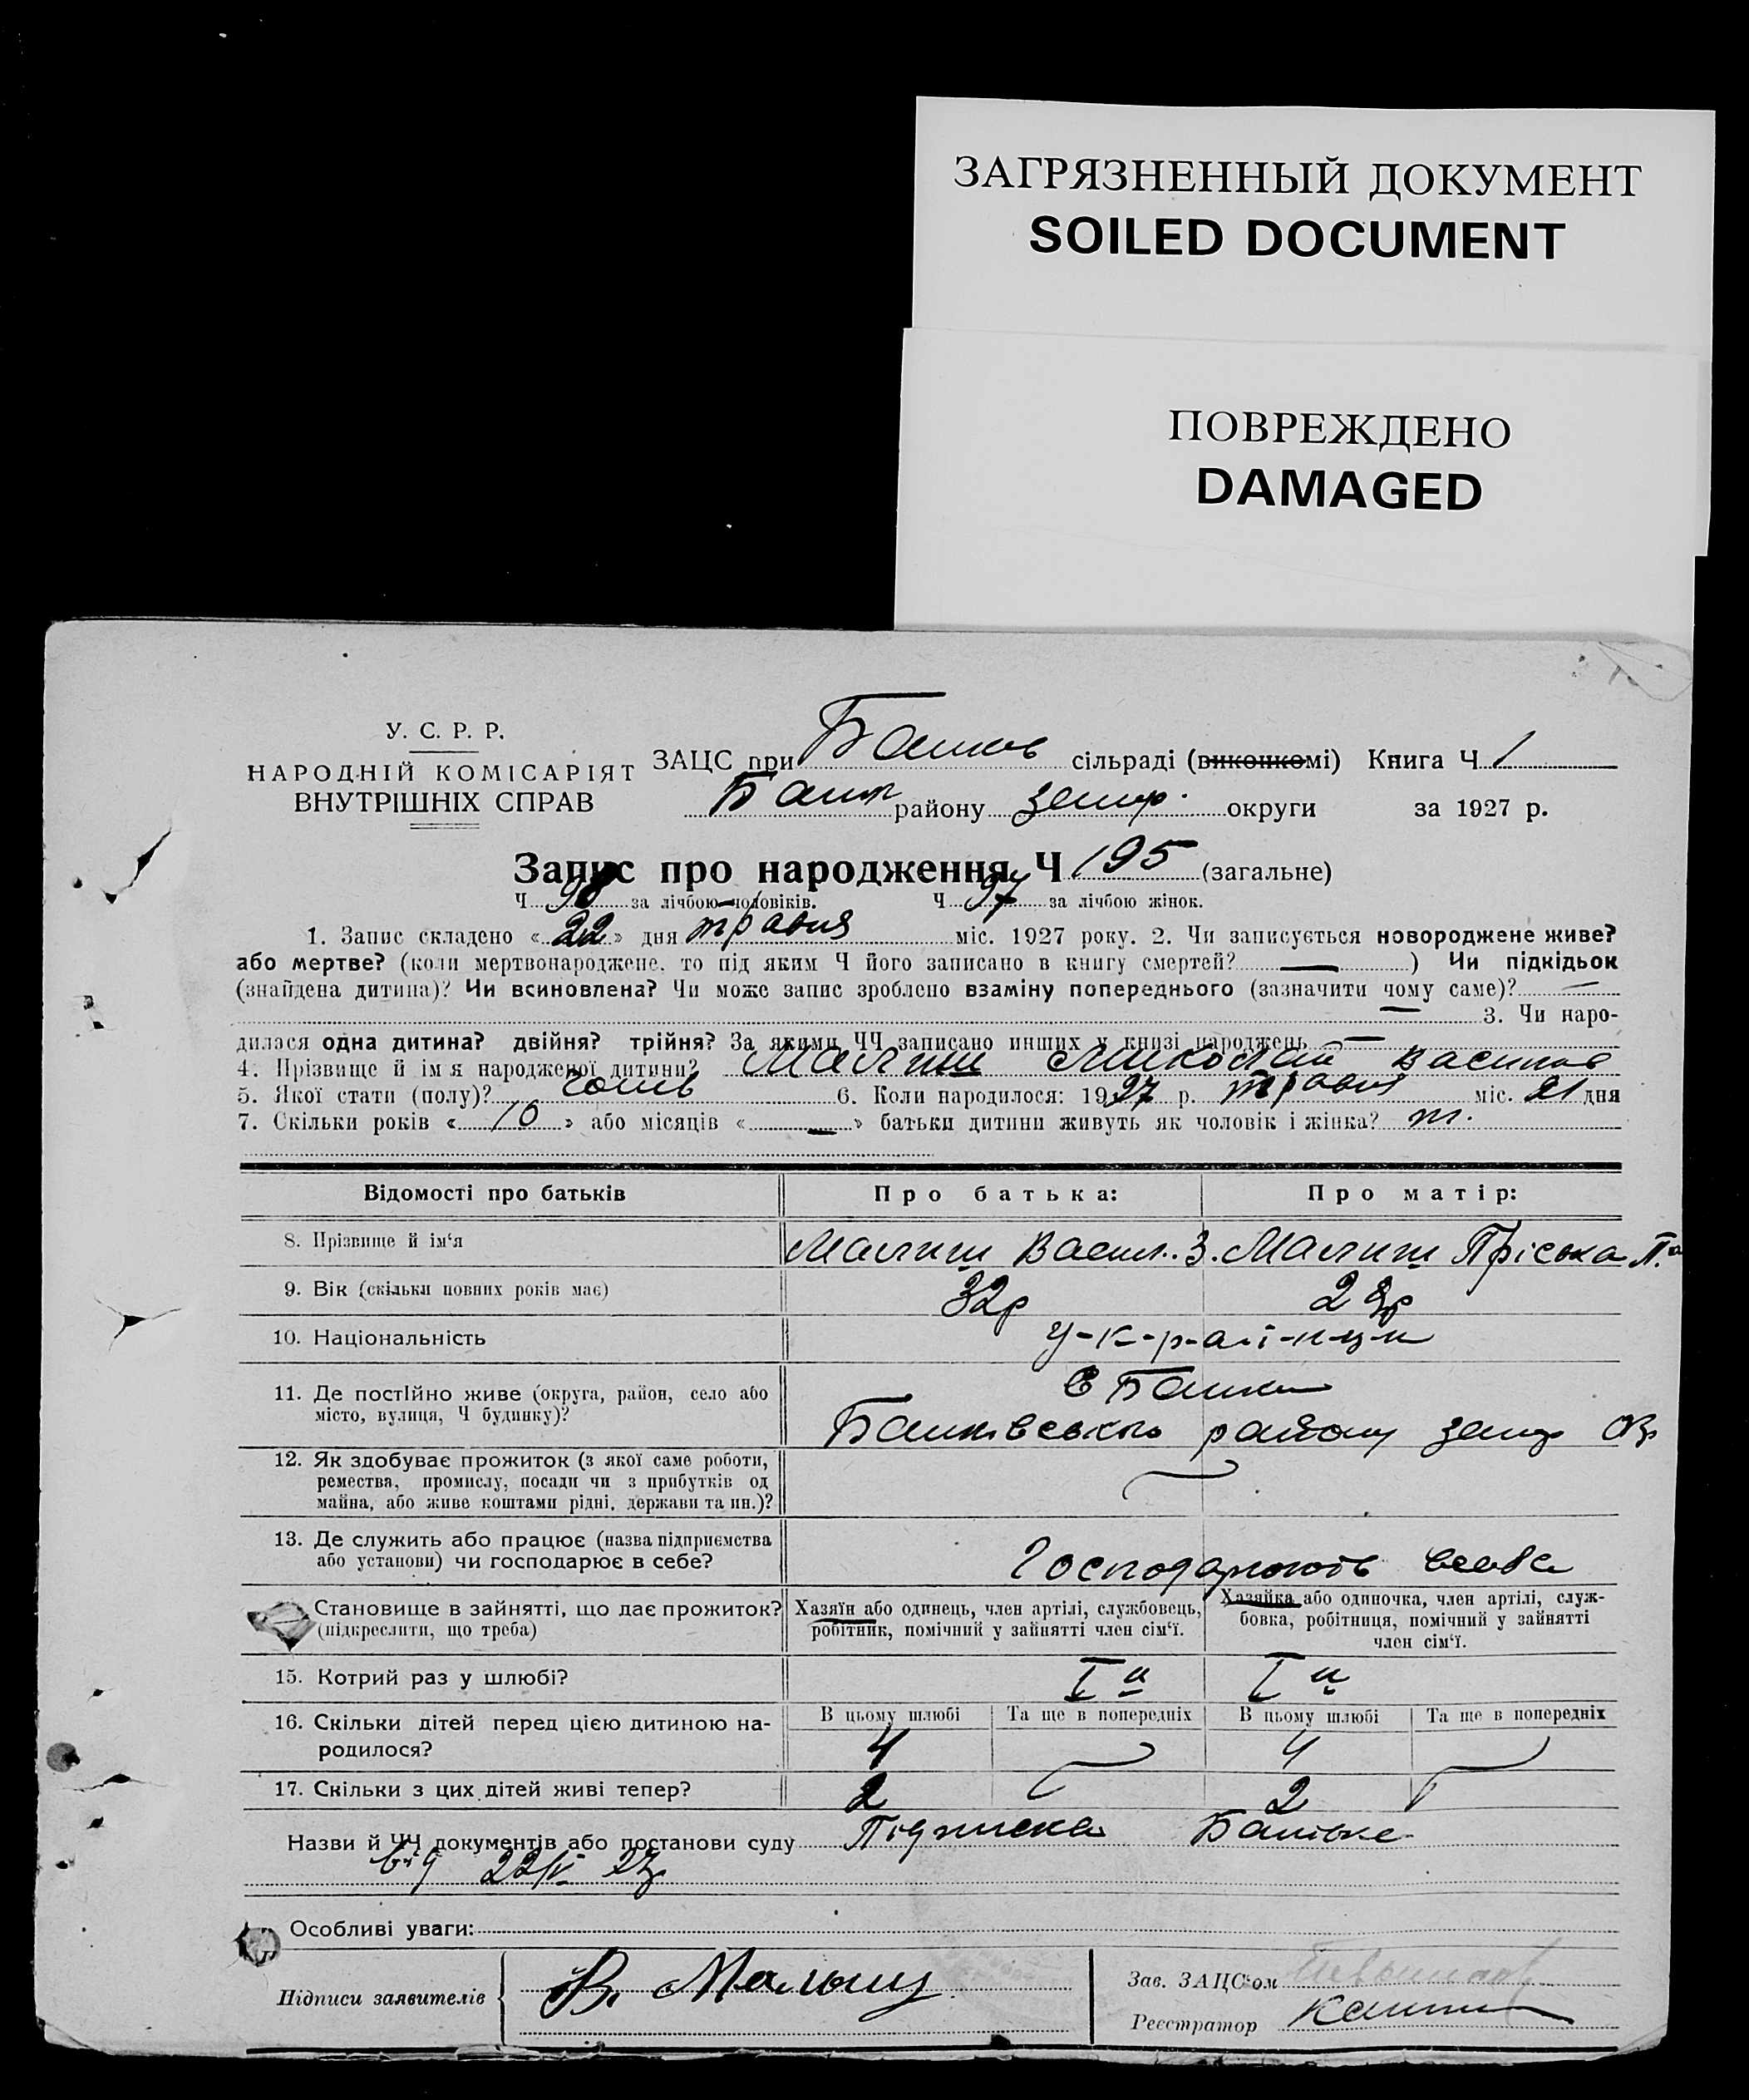 ЗАГРЯЗНЕННЫЙ ДОКУМЕНТ
SOILED DOCUMENT
ПОВРЕЖДЕНО
DAMAGED
У. С. Р. Р.
НАРОДНІЙ КОМІСАРІЯТ
ВНУТРІШНІХ СПРАВ
ЗАЦС при Башков сільраді (виконкомі) Книга Ч 1
Башт району запор. округи за 1927 р.
Запис про народження Ч 195 (загальне)
Ч 98 за лічбою чоловіків. Ч 97 за лічбою жінок.
1. Запис складено « 22 » дня травня міс. 1927 року. 2. Чи записується новороджене живе?
або мертве? (коли мертвонароджене, то під яким Ч його записано в книгу смертей? — ) Чи підкідьок
(знайдена дитина)? Чи всиновлена? Чи може запис зроблено взаміну попереднього (зазначити чому саме)? —
— 3. Чи наро-
дилася одна дитина? двійня? трійня? За якими ЧЧ записано инших у книзі народжень —
4. Прізвище й ім'я народженої дитини? Малиш Миколай Васильов
5. Якої стати (полу)? чолов 6. Коли народилося: 1927 р. травня міс. 21 дня
7. Скільки років « 10 » або місяців « — » батьки дитини живуть як чоловік і жінка?
Відомості про батьків Про батька: Про матір:
8. Прізвище й ім'я Малиш Васил. З. Малиш Пріська П.
9. Вік (скільки повних років має) 32р
10. Національність у-к-р-а-ї-н-ц-и
11. Де постійно живе (округа, район, село або
місто, вулиця, Ч будинку)?
району запор
12. Як здобуває прожиток (з якої саме роботи,
ремества, промислу, посади чи з прибутків од
майна, або живе коштами рідні, держави та ин.)?
13. Де служить або працює (назва підприємства
або установи) чи господарює в себе?
Господарюють в себе
Становище в зайнятті, що дає прожиток?
(підкреслити, що треба)
Хазяїн або одинець, член артілі, службовець,
робітник, помічний у зайнятті член сім'ї.
Хазяйка або одиночка, член артілі, служ-
бовка, робітниця, помічний у зайнятті
член сім'ї.
15. Котрий раз у шлюбі? І й І й
16. Скільки дітей перед цією дитиною на-
родилося?
В цьому шлюбі Та ще в попередніх В цьому шлюбі Та ще в попередніх
4 4
17. Скільки з цих дітей живі тепер? 2 2
Назви й ЧЧ документів або постанови суду Підписка
від 22/V 27р
Особливі уваги:
Підписи заявителів В. Малыш
Зав. ЗАЦС'ом
Реєстратор